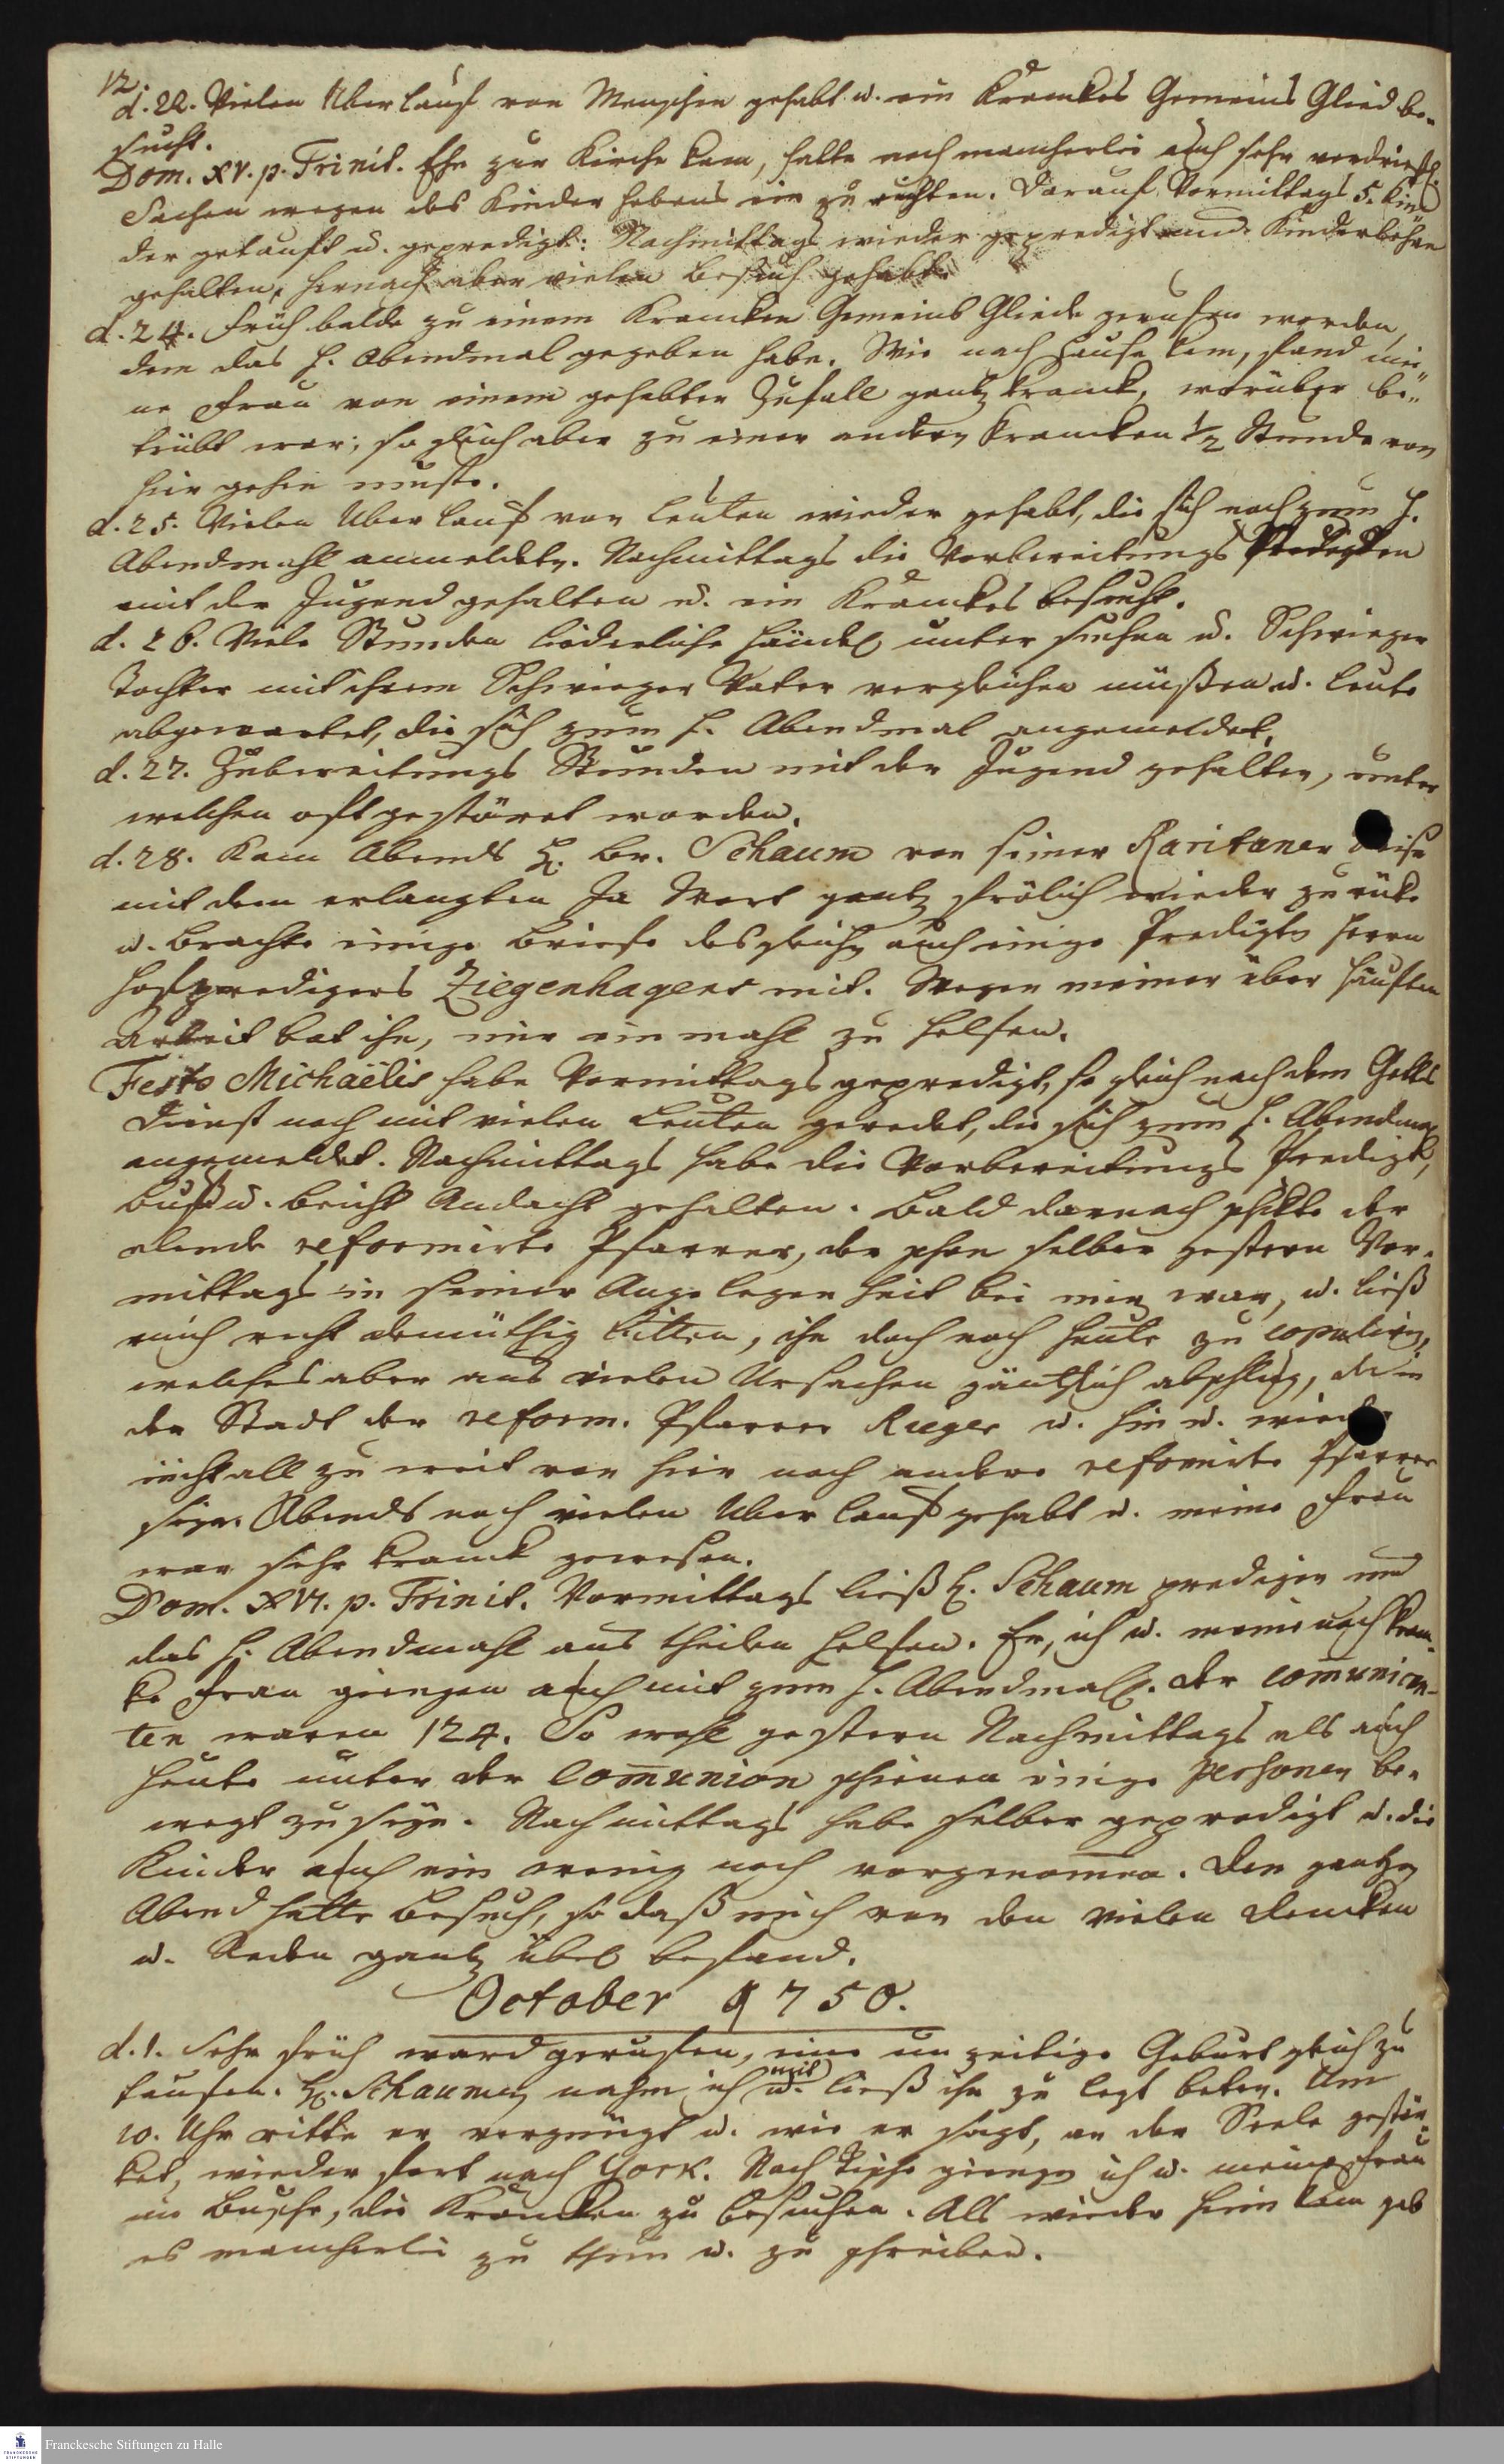 12.
d. 22. Vielen Uberlauf von Menschen gehabt u. ein Kranckes Gemeins Glied be-
sucht.
Dom. XV. p. Trinit. Ehe zur Kirche kam, hatte noch mancherlei auch sehr verdriesl.
Sachen wegen des Kinder hebens ein zu richten. Darauf Vormittags 5. Kin-
der getauft u. gepredigt: Nachmittags wieder gepredigt und Kinderlehre
gehalten, hernach aber vielen Besuch gehabt.
d. 24. Früh balde zu einem Krancken Gemeins Gliede gerufen worden,
dem das h. Abendmal gegeben habe. Wie nach Hause kam, fand mei-
ne Frau von einem gehabten Zufall gantz kranck, worüber be-
trübt war; so gleich aber zu einer andern Krancken 1/2 Stunde von
hier gehen muste.
d. 25. Vielen Uberlauf von Leuten wieder gehabt, die sich noch zum h.
Abendmahl anmeldetn. Nachmittags die Vorbereitungs
mit der Jugend gehalten u. ein Kranckes besucht.
d. 26. Viele Stunden liederliche Händel unter suchen u. Schwieger
Tochter mit ihrem Schwieger Vater vergleichen müßen u. Leute
abgewartet, die sich zum h. Abendmal angemeldet.
d. 27. Zubereitungs Stunden mit der Jugend gehalten, unter
welchen oft gestöret worden.
d. 28. Kam Abends H. Br. Schaum von seiner Raritaner Reise
mit dem erlangten Ja Wort gantz frölich wieder zurück
u. brachte einige Briefe desgleichen auch einige Predigtn Herrn
Hofpredigers Ziegenhagens mit. Wegen meiner über häuften
Arbeit bat ihn, mir ein mahl zu helfen.
Festo Michaëlis habe Vormittags gepredigt, so gleich nach dem Gottes
dienst noch mit vielen Leuten geredet, die sich zum h. Abendmahl
angemeldet. Nachmittags habe die Vorbereitungs Predigt,
Buß u. Beicht Andacht gehalten. Bald darnach schickte der
elende reformirte Pfarrer, der schon selber gestern Vor-
mittags in seiner Angelegenheit bei mir war, u. ließ
mich recht demüthig bitten, ihn doch noch heute zu copuliren,
welches aber aus vielen Ursachen gäntzlich abschlug, da in
der Stadt der reform. Pfarrer Rieger u. hin u. wieder
nicht all zu weit von hier noch andere reformirte Pfarrer
seyn. Abends noch vielen Uberlauf gehabt u. meine Frau
war sehr kranck gewesen.
Dom. XVI. p. Trinit. Vormittags ließ H. Schaum predigen und
das h. Abendmahl aus theilen helfen. Er, ich u. meine noch kran-
ke Frau giengen auch mit zum h. Abendmahl. Der communican-
ten waren 124. So wohl gestern Nachmittags als auch
heute unter der Communion schienen einige Personen be-
wegt zu seyn. Nachmittags habe selber gepredigt u. die
Kinder auch ein wenig noch vorgenommen. Den gantzen
Abend hatte Besuch, so daß mich von den vielen Dencken
u. Reden gantz übel befand.
October 1750.
d. 1. Sehr früh ward gerufen, eine unzeitige Geburt gleich zu
taufen. H. Schaumen nahm ich mit u. ließ ihn zu letzt beten. Um
10. Uhr ritte er vergnügt u. wie er sagt, an der Seele gestär-
ket, wieder fort nach York. Nach Tische gienge ich u. meine Frau
im Busche, die Krancken zu besuchen. Als wieder heim kam gab
es mancherlei zu thun u. zu schreiben.
Franckesche Stiftungen zu Halle